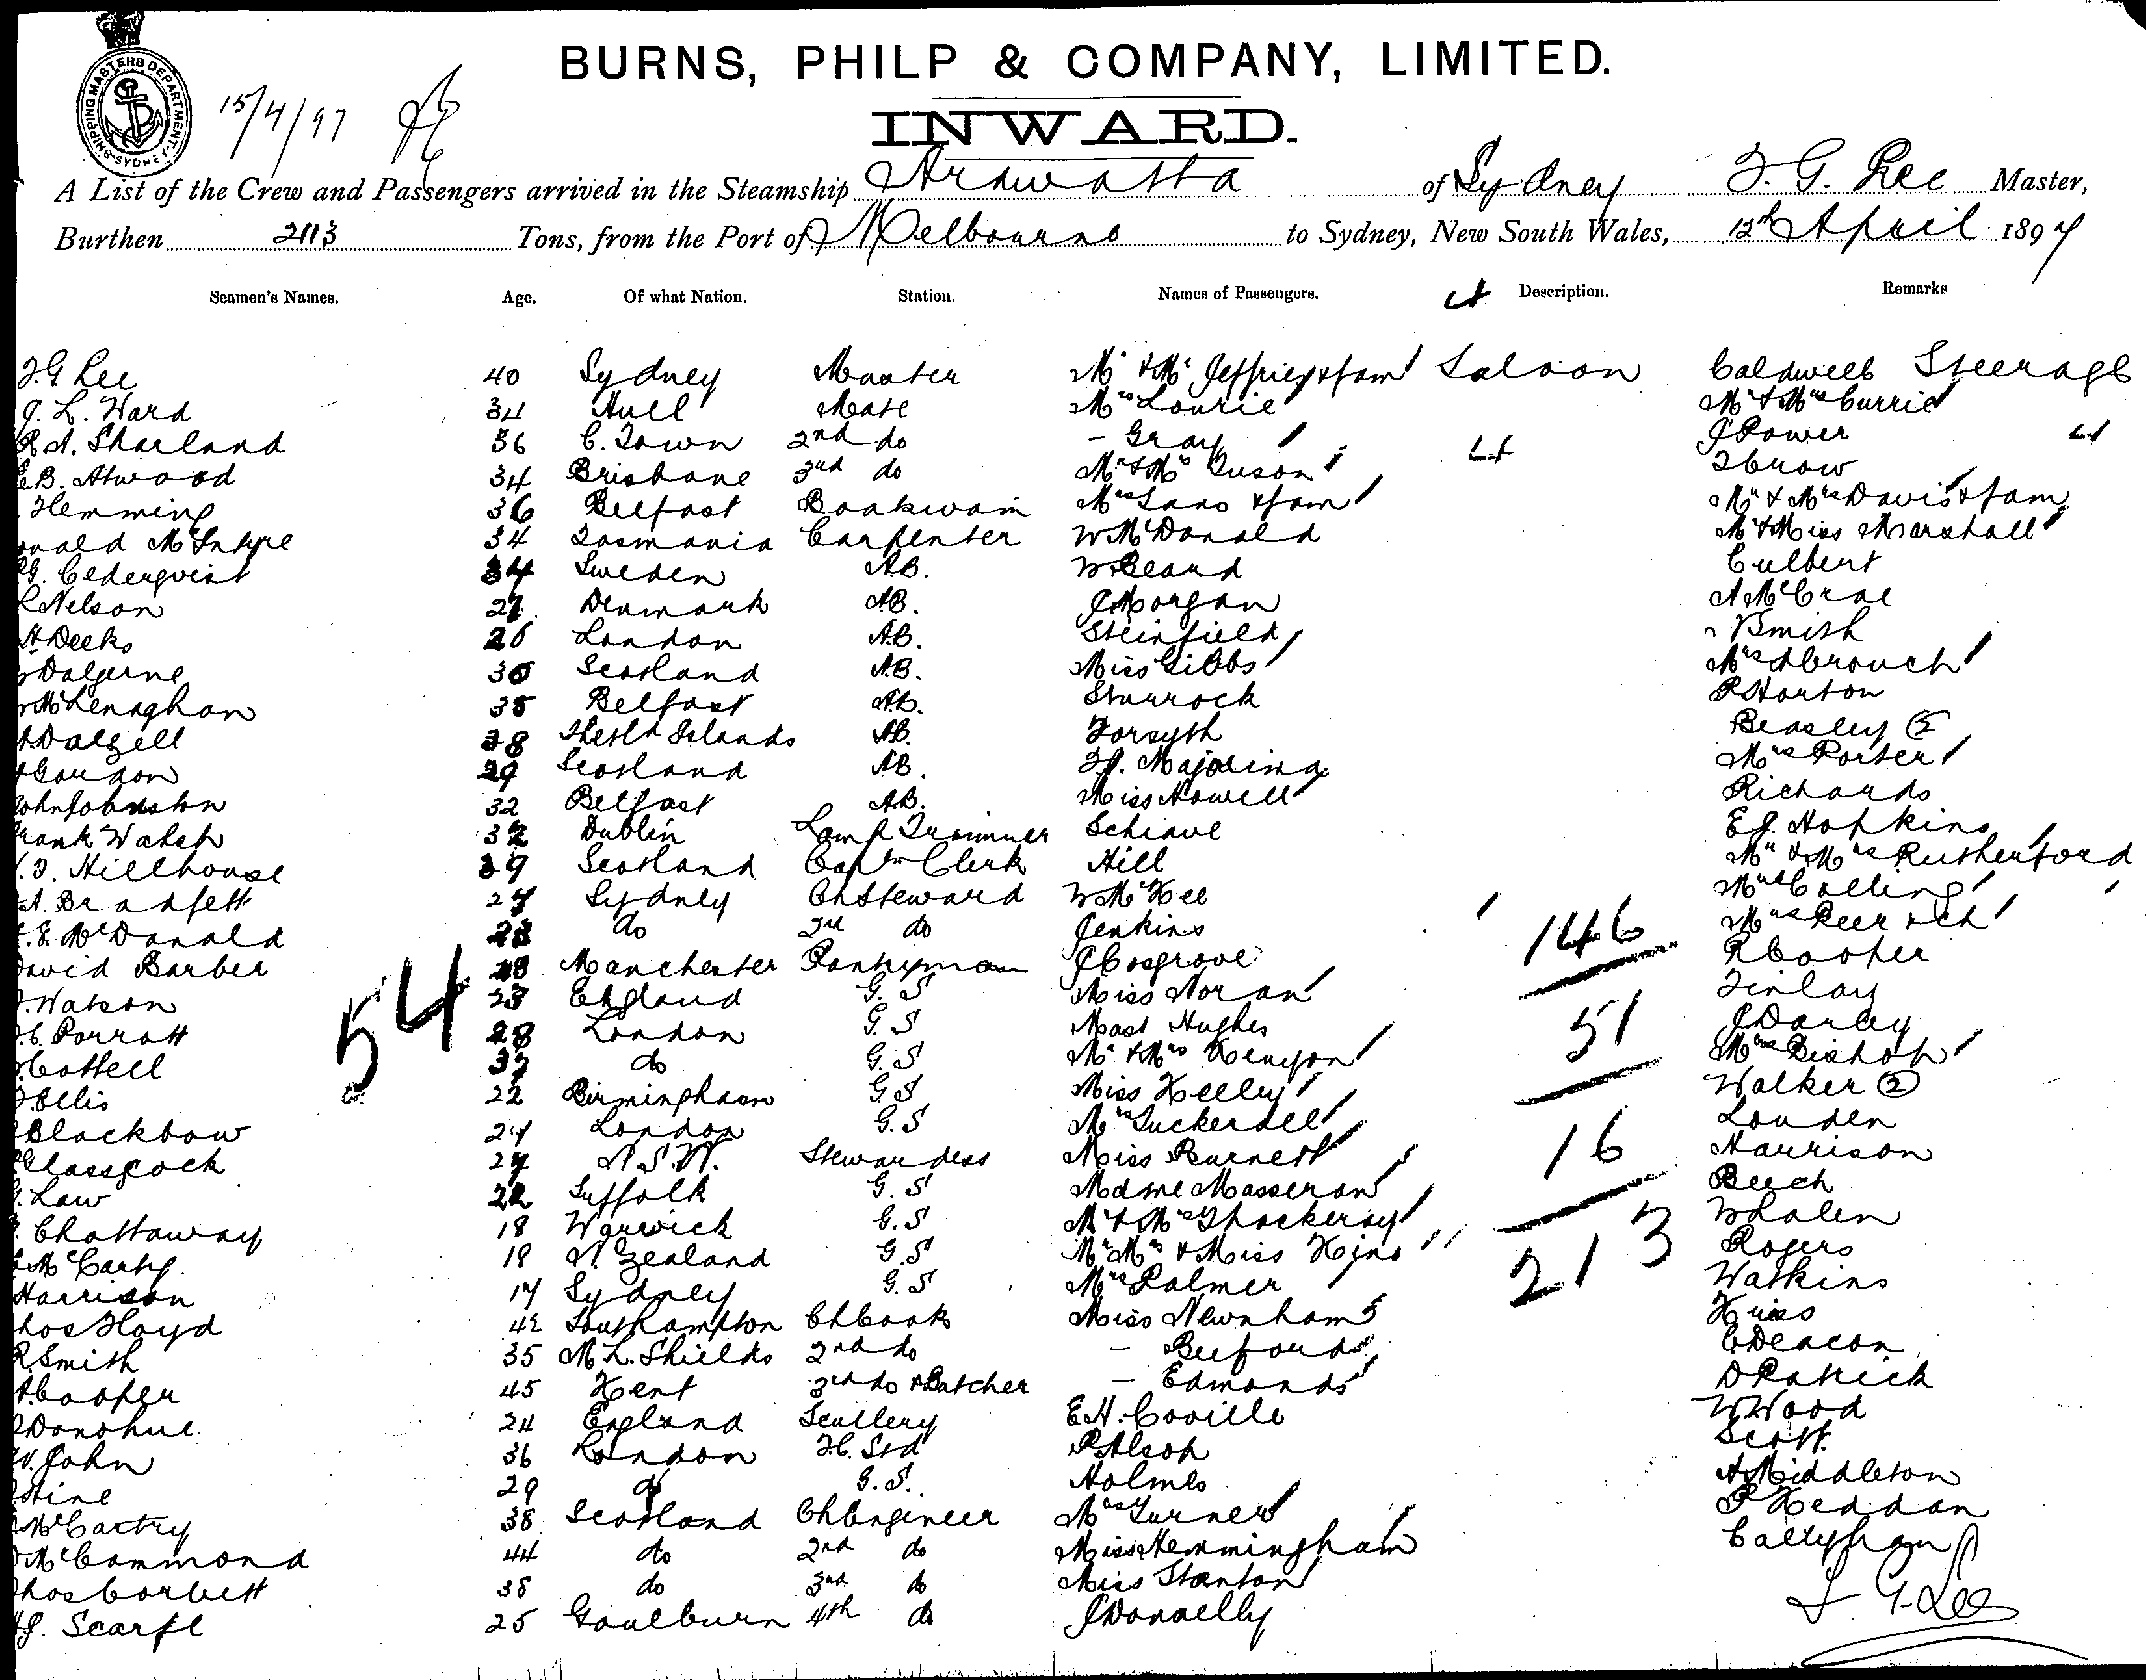 BURNS, PHILP & COMPANY, LIMITED.
SHIPPING MASTERS DEPARTMENT SYDNEY
15/4/97
INWARD.
A List of the Crew and Passengers arrived in the Steamship Arawatta of Sydney T. G. Lee Master,
Burthen 2113 Tons, from the Port of Melbourne to Sydney, New South Wales, 12th April 1897
Seamen's Names. Age. Of what Nation. Station. Names of Passengers. Description. Remarks
T.G Lee 40 Sydney Master Mr & Mrs Jeffries & fam Saloon Caldwell Steerage
J. L. Ward 34 Hull Mate Mrs Lourie Mr & Mrs Currie
R A. Sharland 36 C. Town 2nd do - Gray J Power
E B. Atwood 34 Brisbane 3rd do Mr & Mrs Tuson
Hemming 36 Belfast Boatswain Mrs & fam Mr & Mrs Davis & fam
onald McIntyre 34 Tasmania Carpenter W McDonald Mr & Miss Marshall
G. Cederqvist 34 Sweden AB. W Beard Culbert
Nelson 27 Denmark AB. J Morgan A McCrae
H Deeks 26 London AB. Steinfield Smith
Dalgerne 30 Scotland AB. Miss Gibbs Mrs A Crouch
McLenaghan 35 Belfast AB. Sturrock P Horton
Dalzell 38 Shetld Islands AB. Forsyth Beasley (2
Gordon 29 Scotland AB. Mrs Porter
John Johnston 32 Belfast AB. Miss Howell Richards
Frank Walsh 32 Dublin Lamp Trimmer Schiave E J. Hopkins
T. Hillhouse 39 Scotland Captn Clerk Hill Mr & Mrs Rutherford
A. Bradfett 27 Sydney Ch Steward W McKee Mrs Colling
E. McDonald 23 do 2nd do Jenkins Mrs Peer & ch
David Barber 28 Manchester Pantryman J Cosgrove 146 R Cooper
Watson 23 England G. S Miss Moran Finlay
C. Parrott 54 28 London G. S Mast Hughes 51 J Darley
Cottell 37 do G. S Mr & Mrs Kenyon Mrs Bishop
Ellis 22 Birmingham G S Miss Kelley Walker (2)
Blackbow 24 London G. S Mrs Tuckerdell Louden
Glasscock 27 N. S. W. Stewardess Miss Burnett 16 Harrison
Law 22 Suffolk G. S Madme Masseran Beech
Chattaway 18 Warwick G. S Mr & Mrs Thackeray Whalen
McCarty 18 N. Zealand G. S Mr Mrs & Miss King 213 Rogers
Harrison 17 Sydney G. S Mrs Palmer Watkins
hos Floyd 42 Southampton Ch Cook Miss Newnham
R Smith 35 Nth. Shields 2nd do - Beefords E Deacon
Cooper 45 Kent 3rd do & Butcher - Edmonds D Patrick
Donohue 24 England Scullery E H. Coville W Wood
W. John 36 London F.C. Std P Alsop Scott.
Hine 29 do G. S. Holmes A Middleton
McCartry 38 Scotland Ch Engineer Mrs Turner P Heddon
McCammond 44 do 2nd do Miss Hemmingham Callyhan
hos Corbett 38 do 3rd do Miss Stanton
J. Scarfe 25 Goulburn 4th do J Donnelly T. G. Lee